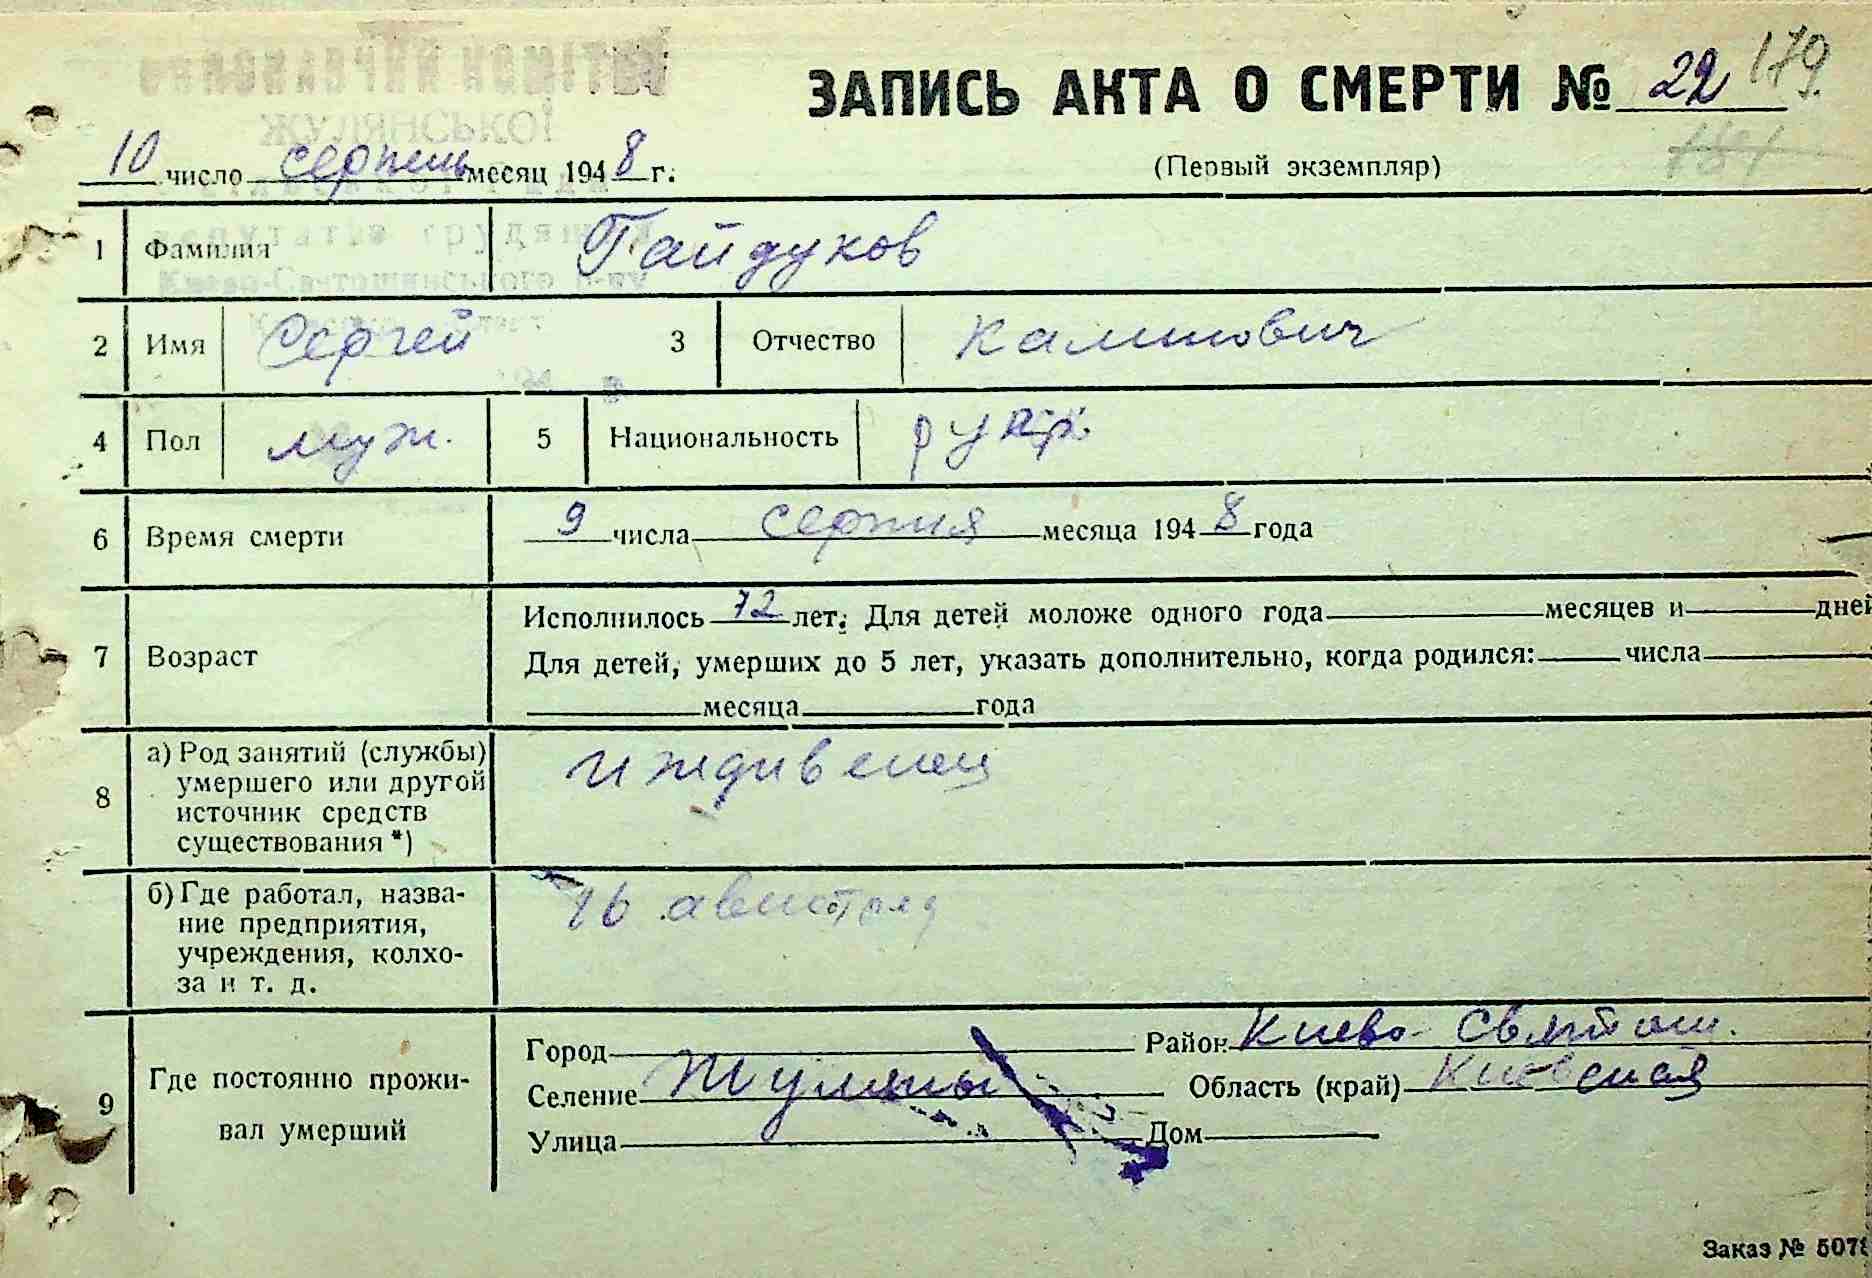 ЗАПИСЬ АКТА О СМЕРТИ № 22 179.
ЖУЛЯНСЬКОЇ
10 число серпень месяц 1948 г.
(Первый экземпляр)
181
1 Фамилия Гайдуков
2 Имя Сергей 3 Отчество Калинович
4 Пол муж. 5 Национальность
6 Время смерти 9 числа серпня месяца 1948 года
7 Возраст
Исполнилось 72 лет. Для детей моложе одного года месяцев и дней
Для детей, умерших до 5 лет, указать дополнительно, когда родился: числа
месяца года
8 а) Род занятий (службы) умершего или другой источник средств существования *)
иждивенец
б) Где работал, назва-
ние предприятия,
учреждения, колхо-
за и т. д.
16
9 Где постоянно прожи-
вал умерший
Город Район Киево-Святош.
Селение Жуляны Область (край) Киевская
Улица Дом
Заказ № 507